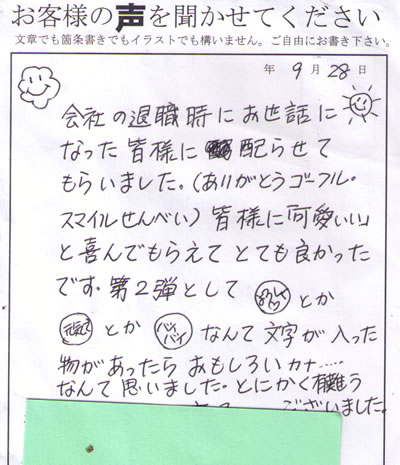 お客様の声を聞かせてください
文章でも箇条書きでもイラストでも構いません。ご自由にお書き下さい。
年 9月 28日
会社の退職時にお世話に
なった皆様に配らせて
もらいました。(ありがとうゴーフル・
スマイルせんべい)皆様に「可愛いい」
と喜んでもらえてとても良かった
です。第2弾として とか
元気で とか バイバイ なんて文字が入った
物があったらおもしろいカナ……
なんて思いました。とにかく有難う
ございました。